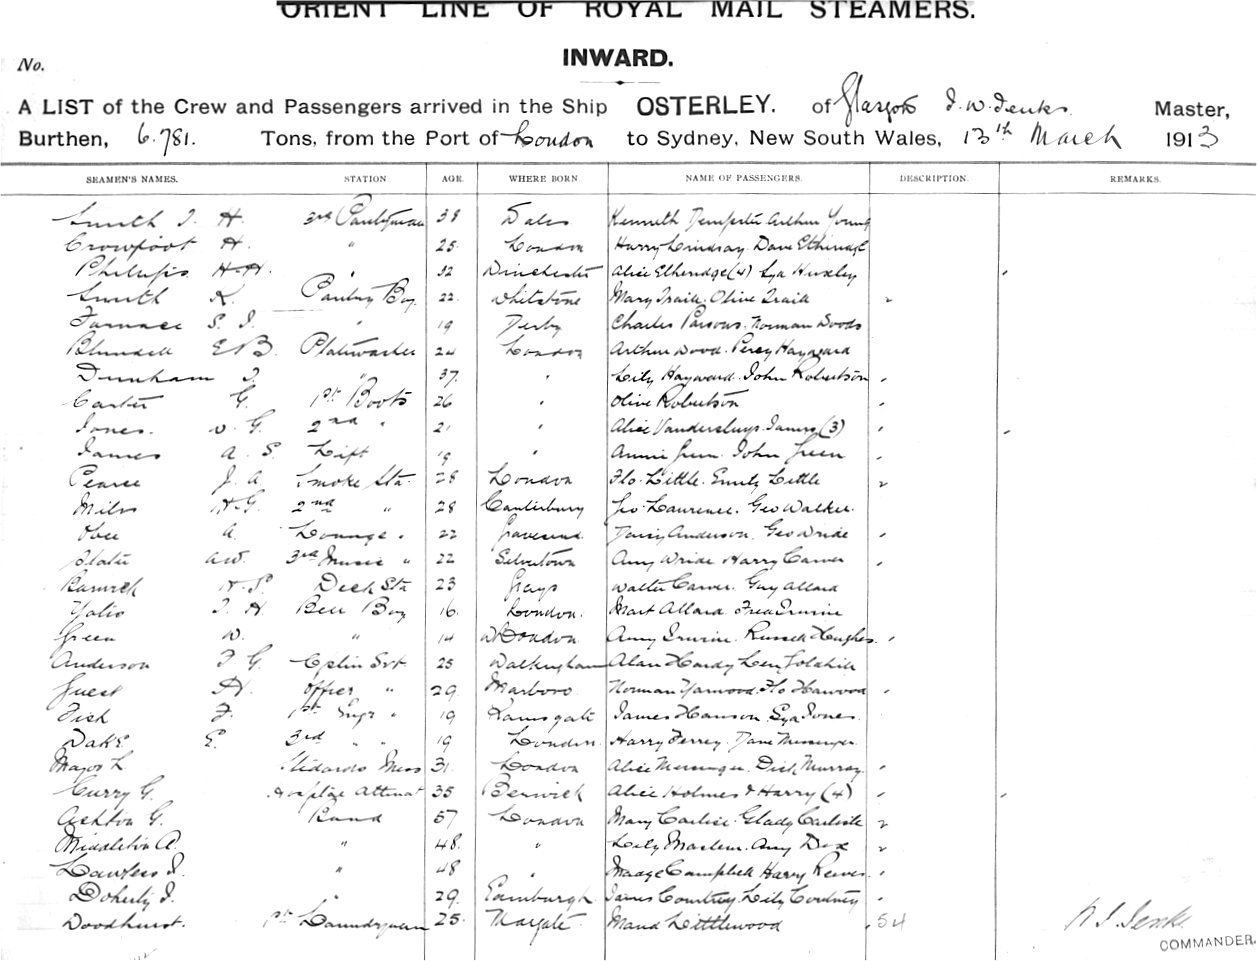 ORIENT LINE OF ROYAL MAIL STEAMERS.
INWARD.
No.
A LIST of the Crew and Passengers arrived in the Ship OSTERLEY. of Glasgow Master,
Burthen, 6.781. Tons, from the Port of London to Sydney, New South Wales, 13th March 1913
SEAMEN'S NAMES. STATION AGE. WHERE BORN NAME OF PASSENGERS. DESCRIPTION. REMARKS.
Smith J. H. 3rd Pantryman 38 Kenneth Dempster Arthur Young
Crowfoot H. " 25 London Harry Lindsay. Dave Etheridge
Phillips H.H. " 32 Winchester Alice Etheridge (4)
Smith K. Pantry Boy 22 Whitstone Mary Traill. Olive Traill
Furnace S. J. " 19 Derby Charles Parsons. Norman Woods
Blundell E B. Platewasher 24 London Arthur Wood. Percy Hayward
Dunham J. " 37. " Lily Hayward. John Robertson
Carter G. 1st Boots 26 " Olive Robertson
Jones. W. G. 2nd " 21 " Alice Vandersluys. James (3)
James A. S. Lift 19 " Annie Green. John Green
Pearce J. A Smoke Sta. 28 London Flo. Little. Emily Little
H G. 2nd " 28 Canterbury Geo. Lawrence. Geo Walker.
A. Lounge " 22 Gravesend Daisy Anderson. Geo Wride
Slater A W. 3rd Music " 22 Silvertown Amy Wride Harry Carver
H. S. Deck Sta 23 Grays Walter Carver. Guy Allard
J. H Bell Boy 16. London. Mart Allard. Fred Irwin
Green W. " 14 W London Amy Irwin. Russell Hughes.
Anderson F G. Cptn Svt 25 Walkingham Alan Hardy
Guest A. Officer " 29 Marboro. Norman
Fisk F. 1st Engr " 19 Ramsgate James Hanson. Jones.
Dake E. 3rd " " 19 London. Harry Ferrey. Dave Messenger.
Major L Stewards Mess 31. London Alice Messenger. Dick Murray.
Curry G. Hospital Attendant 35 Berwick Alice Holmes & Harry (4)
Ashton G. Band 57 London Mary Carlisle. Glady Carlisle
Middleton A. " 48. " Lily Amy Dix
Lawless J. " 48 " Madge Campbell Harry Reeves.
Doherty J. " 29. Edinburgh. James Courtney. Lily Courtney
Woodhurst. 1st Laundryman 25. Margate. Maud Littlewood 54
COMMANDER.